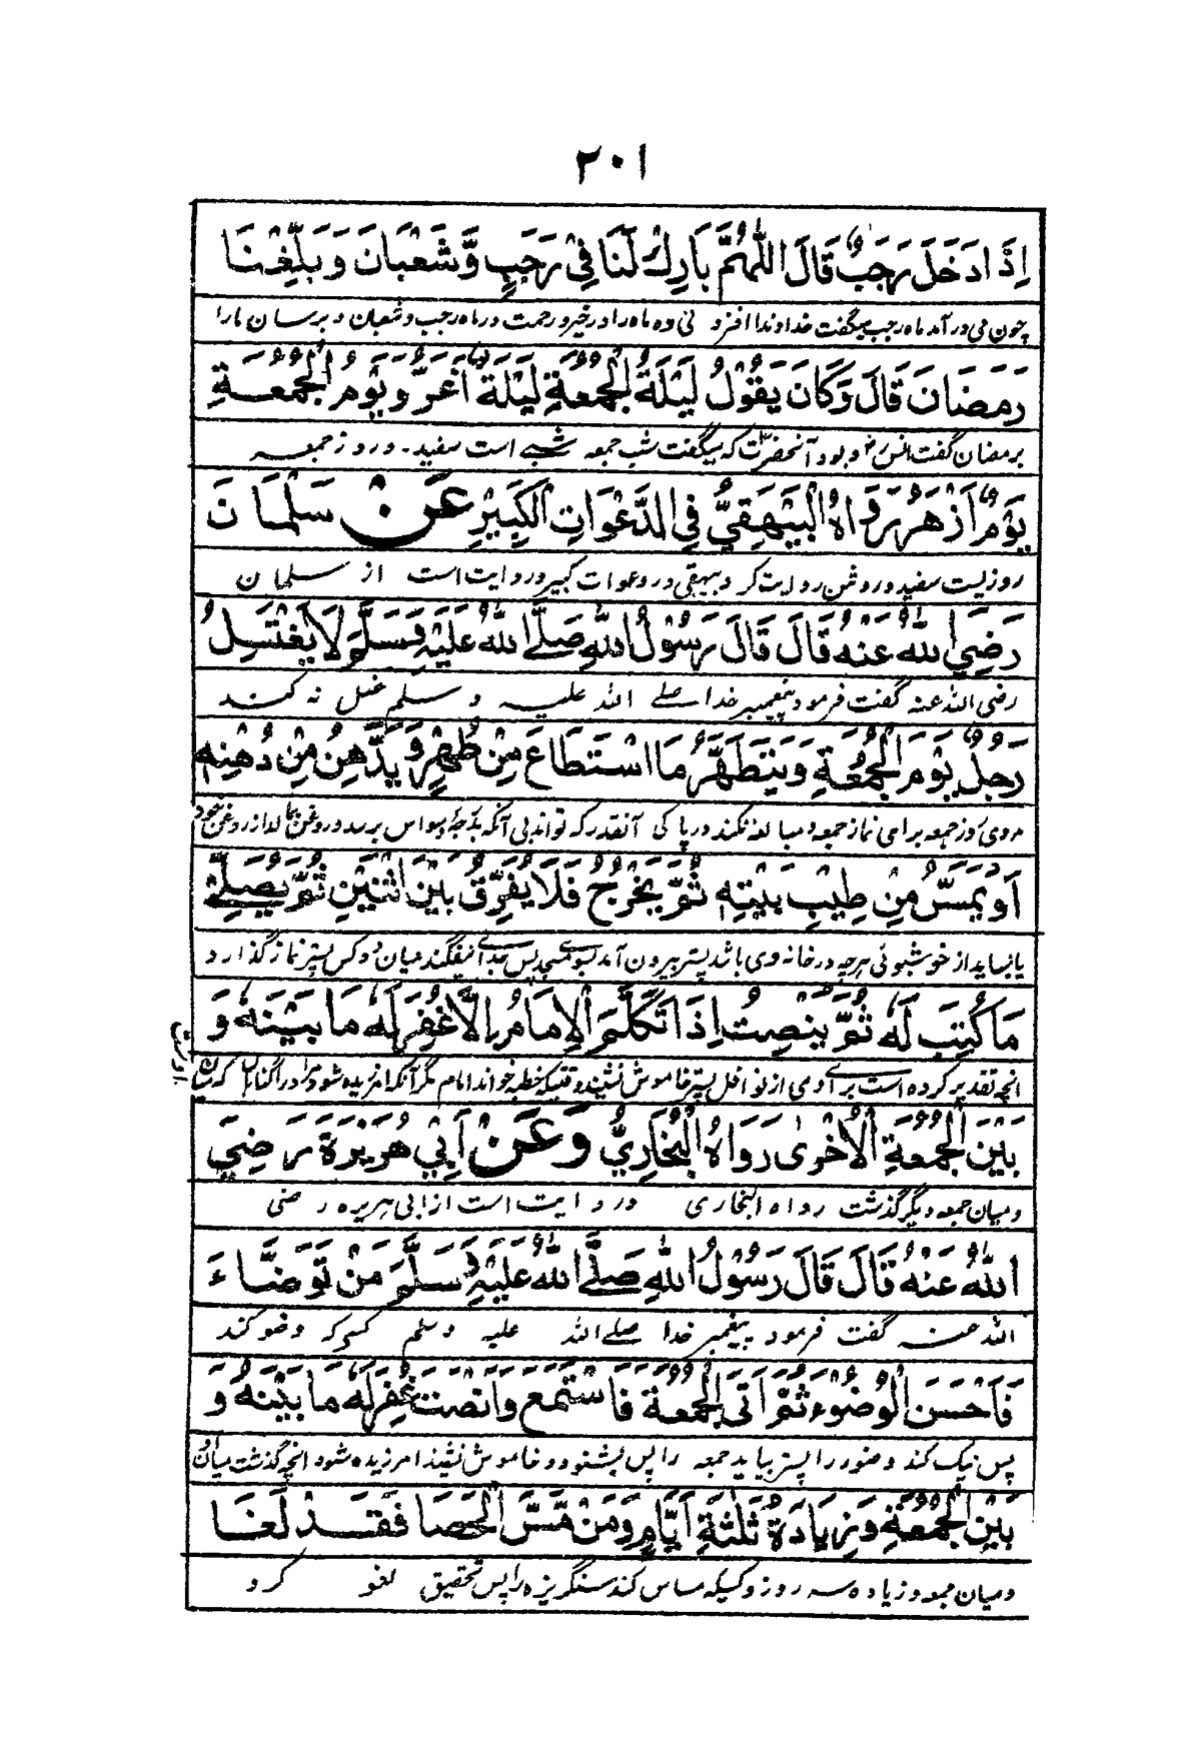 ٢٠١
اِذَا دَخَلَ رَجَبٌ قَالَ اللّٰهُمَّ بَارِكْ لَنَا فِيْ رَجَبٍ وَّشَعْبَانَ وَبَلِّغْنَا
چون می در آمد ماه رجب میگفت خداوندا افزونی ده ما را در خیر و رحمت در ماه رجب و شعبان و برسان ما را
رَمَضَانَ قَالَ وَكَانَ يَقُوْلُ لَيْلَةُ الْجُمُعَةِ لَيْلَةٌ اَغَرُّ وَيَوْمُ الْجُمُعَةِ
برمضان گفت انس رض و بود آنحضرت که میگفت شب جمعه شبے است سفید۔ و روز جمعه
يَوْمٌ اَزْهَرُ رَوَاهُ الْبَيْهَقِيُّ فِي الدَّعَوَاتِ الْكَبِيْرِ عَنْ سَلْمَانَ
روزیست سفید و روشن روایت کرد بیهقی در دعوات کبیر و روایت است از سلمان
رَضِيَ اللّٰهُ عَنْهُ قَالَ قَالَ رَسُوْلُ اللّٰهِ صَلَّے اللّٰهُ عَلَيْهِ وَسَلَّمَ لَا يَغْتَسِلُ
رضی الله عنه گفت فرمود پیغمبر خدا صلے الله علیه و سلم غسل نه کند
رَجُلٌ يَوْمَ الْجُمُعَةِ وَيَتَطَهَّرُ مَا اسْتَطَاعَ مِنْ طُهْرٍ وَيَدَّهِنُ مِنْ دُهْنِهٖ
مردی روز جمعه برای نماز جمعه و مبالغه نکند در پاکی آنقدر که تواند بی آنکه بدرجهٔ وسواس برسد و روغن نمالد از روغن خود
اَوْ يَمَسُّ مِنْ طِيْبِ بَيْتِهٖ ثُمَّ يَخْرُجُ فَلَا يُفَرِّقُ بَيْنَ اثْنَيْنِ ثُمَّ يُصَلِّے
یا بساید از خوشبوئی هرچه در خانه وی باشد پستر بیرون آمد بسوی مسجد پس جدائے نیفگند میان دو کس پستر نماز گذارد
مَا كُتِبَ لَهٗ ثُمَّ يُنْصِتُ اِذَا تَكَلَّمَ الْاِمَامُ اِلَّا غُفِرَ لَهٗ مَا بَيْنَهٗ وَ
انچه تقدیر کرده است برای آدمی از نوافل پستر خاموش نشیند وقتیکه خطبه خواند امام مگر آنکه آمرزیده شود مر او را گناهان که میان
بَيْنَ الْجُمُعَةِ الْاُخْرٰى رَوَاهُ الْبُخَارِيُّ وَعَنْ اَبِيْ هُرَيْرَةَ رَضِيَ
و میان جمعه دیگر گذشت رواه البخاری و روایت است از ابی هریره رضی
اللّٰهُ عَنْهُ قَالَ قَالَ رَسُوْلُ اللّٰهِ صَلَّے اللّٰهُ عَلَيْهِ وَسَلَّمَ مَنْ تَوَضَّاءَ
الله عنه گفت فرمود پیغمبر خدا صلے الله علیه وسلم کسیکه وضو کند
فَاَحْسَنَ الْوُضُوْءَ ثُمَّ اَتَى الْجُمُعَةَ فَاسْتَمَعَ وَاَنْصَتَ غُفِرَ لَهٗ مَا بَيْنَهٗ وَ
پس نیک کند وضو را پستر بیاید جمعه را پس بشنود و خاموش نشیند آمرزیده شود انچه گذشت میان او
بَيْنَ الْجُمُعَةِ وَزِيَادَةُ ثَلٰثَةِ اَيَّامٍ وَمَنْ مَّسَّ الْحَصَا فَقَدْ لَغَا
و میان جمعه و زیاده سه روز و کسیکه مساس کند سنگریزه را پس تحقیق لغو کرد